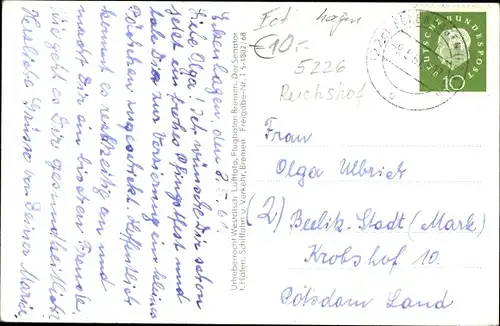 Eckenhagen, den 8.5.61
Liebe Olga! Ich wünsche Dir schon
jetzt ein frohes Pfingstfest und
habe Dir zur Versorgung ein kleines
Päckchen zugeschickt. Hoffentlich
kommt es rechtzeitig an und
macht Dir ein bisschen Freude.
Wie geht es Dir gesundheitlich?
Herzliche Grüsse von Deiner Maria.
Urheberrecht Westdtsch. Luftfoto, Flughafen Bremen. Der Senator
f. Häfen, Schiffahrt u. Verkehr, Bremen Freigabe-Nr. T 5-1802/68
Ect hagen
€10.-
5226
Reichshof
DEUTSCHE BUNDESPOST
10
Frau
Olga Ulbrich
(2) Beelik-Stadt (Mark)
Krobshof 10.
Potsdam Land